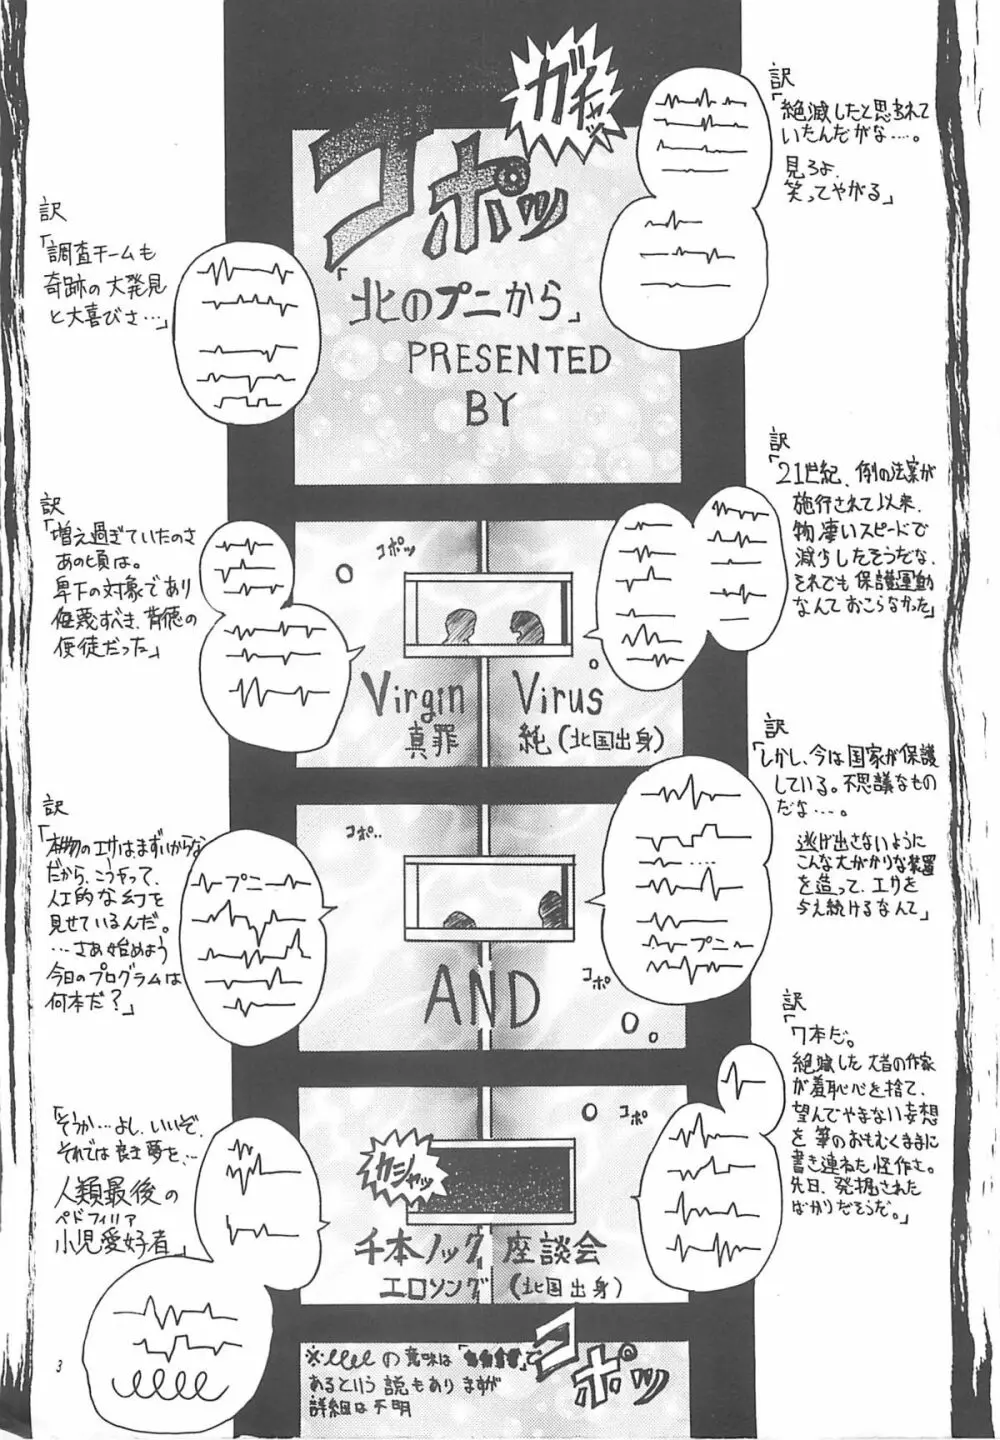 ガチャッ
コポッ
訳
「絶滅したと思われて
いたんだがな……。
見ろよ
笑ってやがる」
訳
「調査チームも
奇跡の大発見
と大喜びさ…」
「北のプニから」
PRESENTED
BY
訳
「21世紀、例の法案が
施行されて以来、
物凄いスピードで
減少したそうだな、
それでも保護運動
なんておこらなかった」
訳
「増え過ぎていたのさ
あの頃は。
卑下の対象であり
侮蔑すべき、背徳の
使徒だった」
コポッ
Virgin Virus
真罪 純(北国出身)
訳
「しかし、今は国家が保護
している。不思議なもの
だな……。
逃げ出さないように
こんな大がかりな装置
を造って、エサを
与え続けるなんて」
プニー
訳
「本物のエサは、まずいからな
だから、こうやって、
人工的な幻を
見せているんだ。
…さあ始めよう
今日のプログラムは
何本だ?」
プニー
コポ..
コポ
AND
訳
「7本だ。
絶滅した大昔の作家
が羞恥心を捨て、
望んでやまない妄想
を筆のおもむくままに
書き連ねた怪作さ。
先日、発掘された
ばかりだそうだ。」
「そうか…よし、いいぞ、
それでは良き夢を、…
人類最後の
ペドフィリア
小児愛好者」
コポ
カシャッ
千本ノック座談会
エロソング(北国出身)
コポッ
の意味は
あるという説もありますが
詳細は不明
3